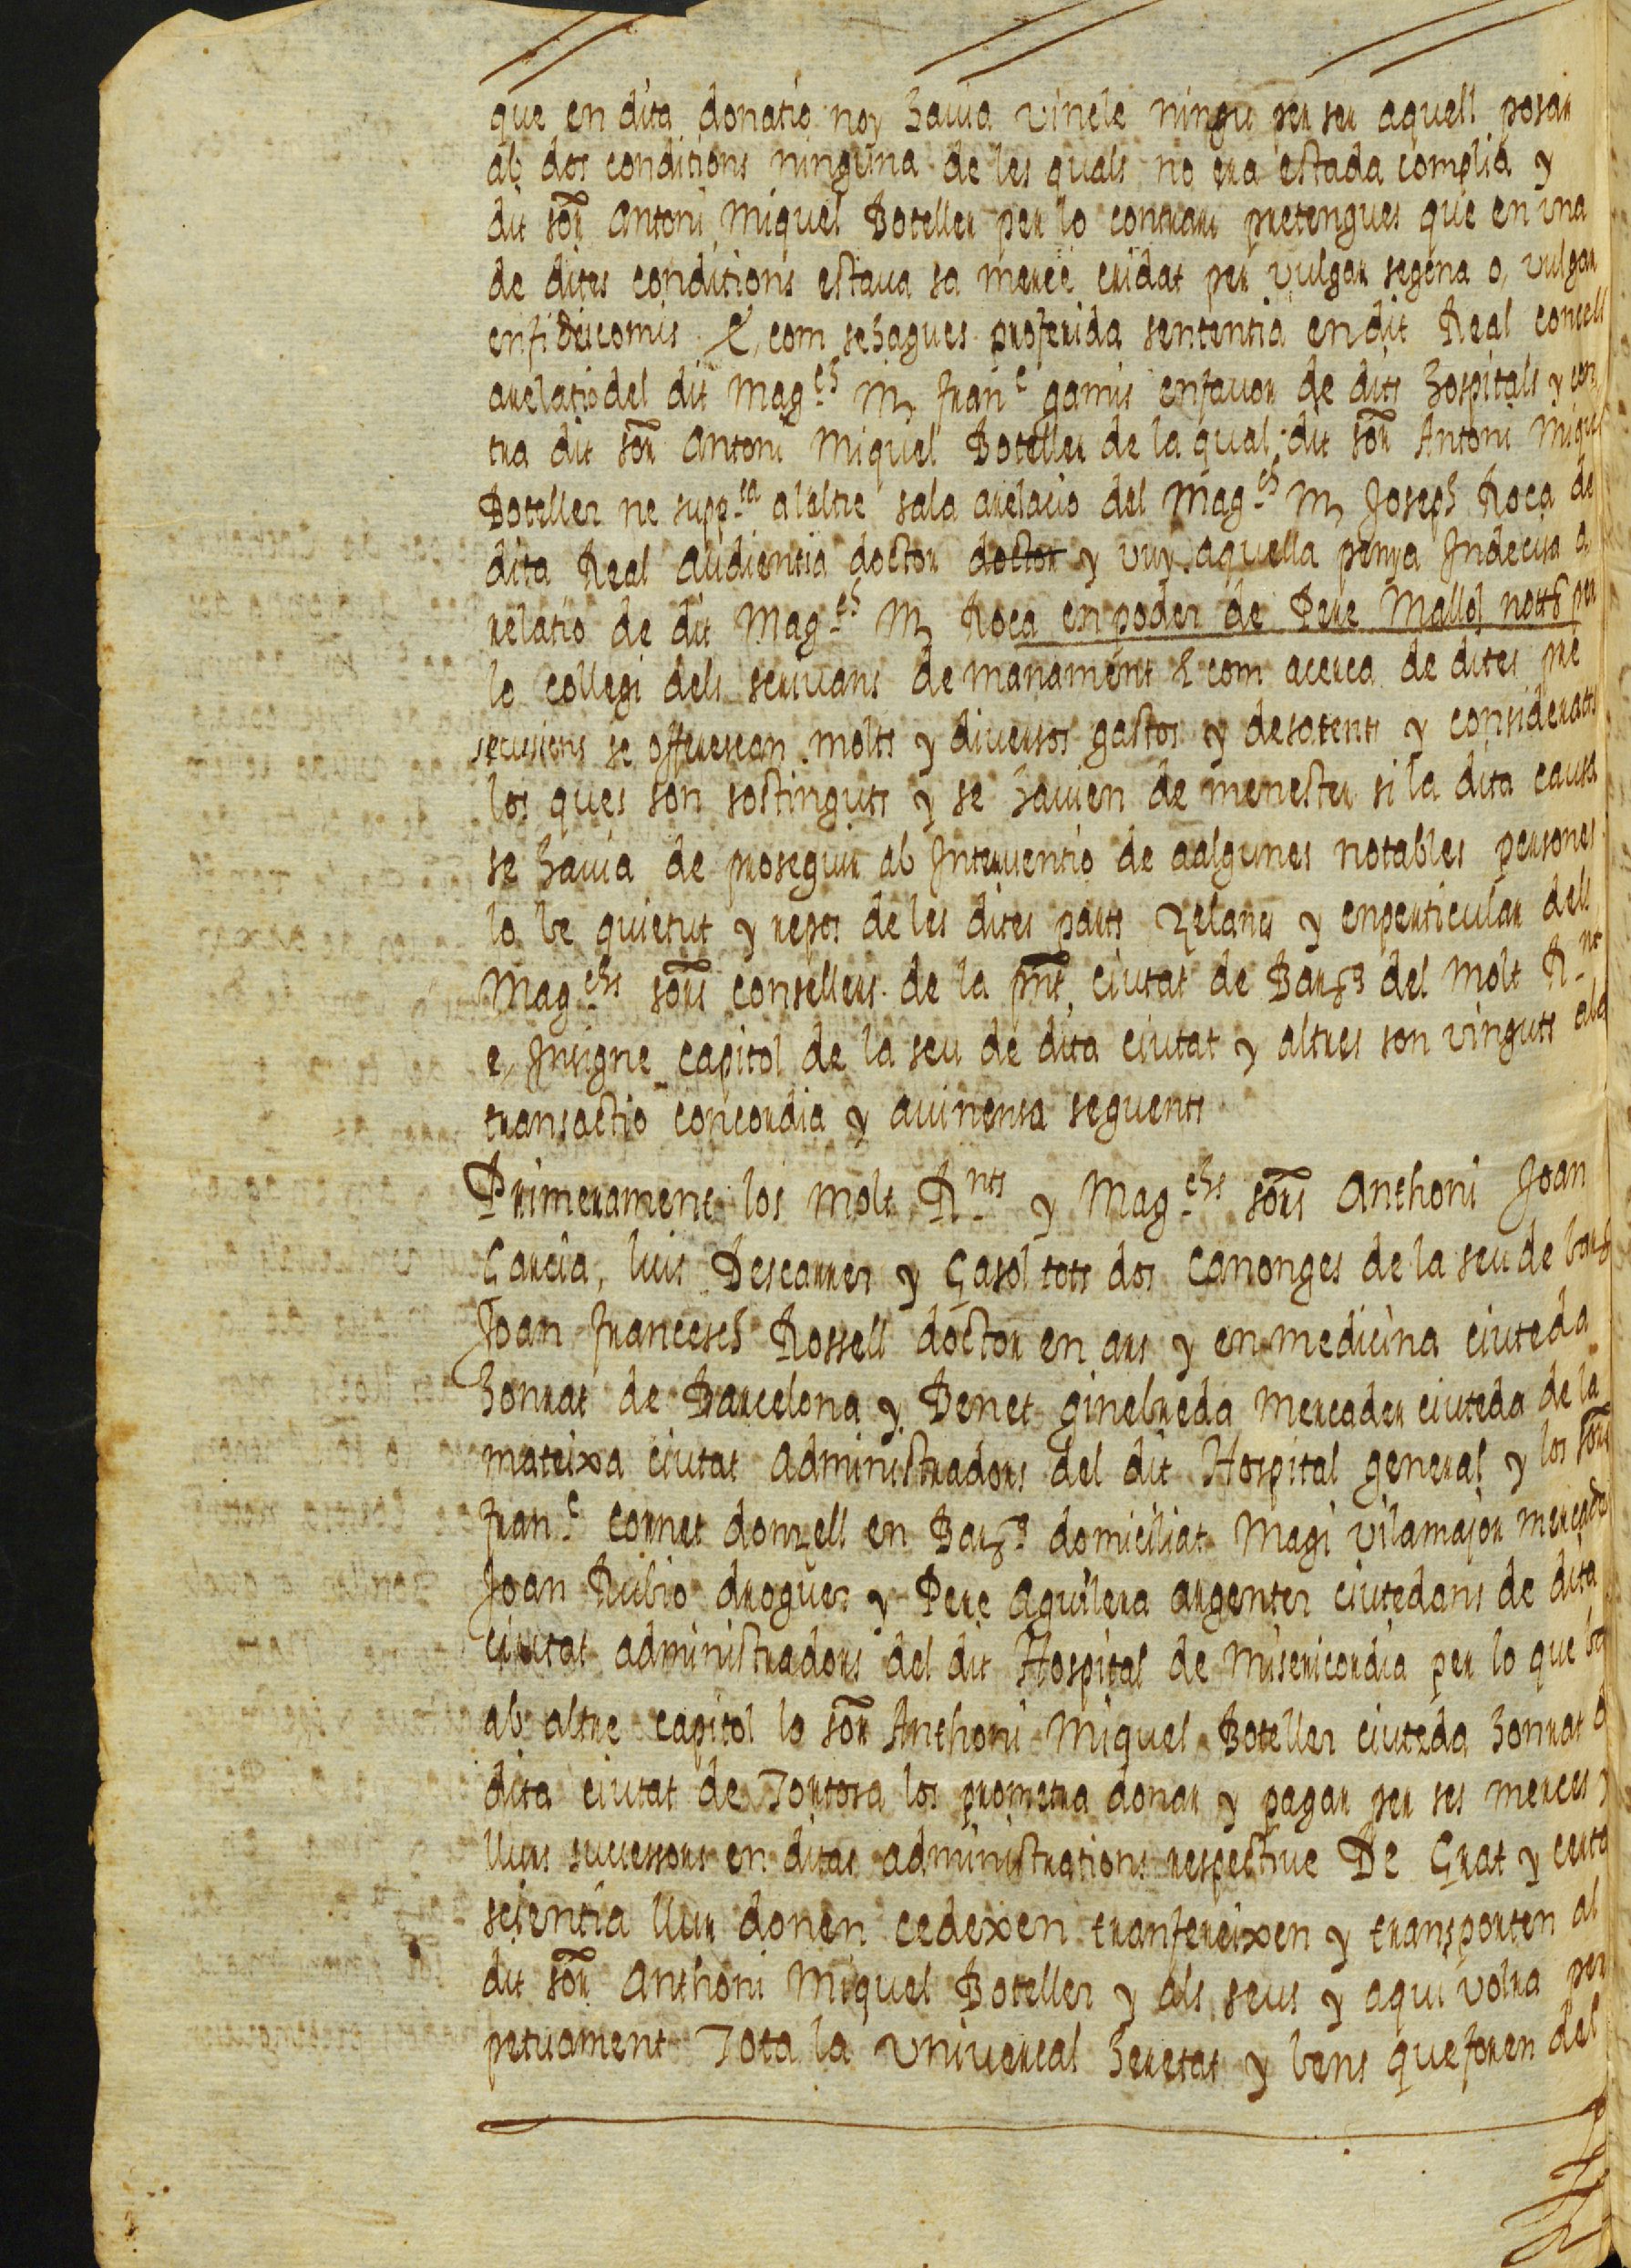 que en dita donatio noy havia vincle ningu per ser aquell posar
ab dos conditions ninguna de les quals no era estada complia y
dit sor Antoni Miquel Boteller per lo contrari pretengues que en una
de dites conditions estava sa merce cridat per vulgar segona o, vulgar
enfideicomis & com sehagues proferida sententia en dit Real concell
arelatio del dit Mag.ch Mr. Fran.c gamis enfavor de dits hospitals y con
tra dit sor Antoni Miquel Boteller de la qual dit sor Antoni Miquel
Boteller ne supp.ca alaltre sala arelacio del Mag.ch Mr. Joseph Roca de
dita Real Audientia doctor doctor y vuy aquella penja Indecisa a
relatio de dit Mag.ch Mr. Roca en poder de Pere Mallol nott per
lo collegi dels scrivans de manament & com acerca de dites pre
secussions se offerescan molts y diversos gastos y desatents y considerats
los ques son sostinguts y se havien de menester si la dita causa
se havia de proseguir ab Interventio de aalgunes notables persones
lo be quietut y repos de les dites parts zelants y enperticular dels
Mag.chs sors consellers de la pnt ciutat de Barna del Molt R.nt
e, Insigne capitol de la seu de dita ciutat y altres son vinguts ala
transactio concordia y avinensa seguents
Primerament los molt R.nts y Mag.chs sors Anthoni Joan
Garcia, luis Descarrer y Gasol tots dos Canonges de la seu de bar
Joan francesch Rossell doctor en ars y en medicina ciuteda
honrat de Barcelona y Benet ginebreda Mercader ciuteda de la
mateixa ciutat Administradors del dit Hospital general y los sors
fran.c cornet donzell en Barna domiciliat Magi vilamajor mercader
Joan Rubio droguer y Pere Aguilera argenter ciutedans de dita
ciutat administradors del dit Hospital de Misericordia per lo que
ab altre capitol lo sor Anthoni Miquel Boteller ciuteda honrat d
dita ciutat de Tortosa los prometra donar y pagar per ses merces y
llurs successors en ditas administrations respective De Grat y certa
scientia llur donen cedexen tranfereixen y transporten al
dit sor Anthoni Miquel Boteller y als seus y aqui volra per
petuament Tota la Univercal heretat y bens queforen del